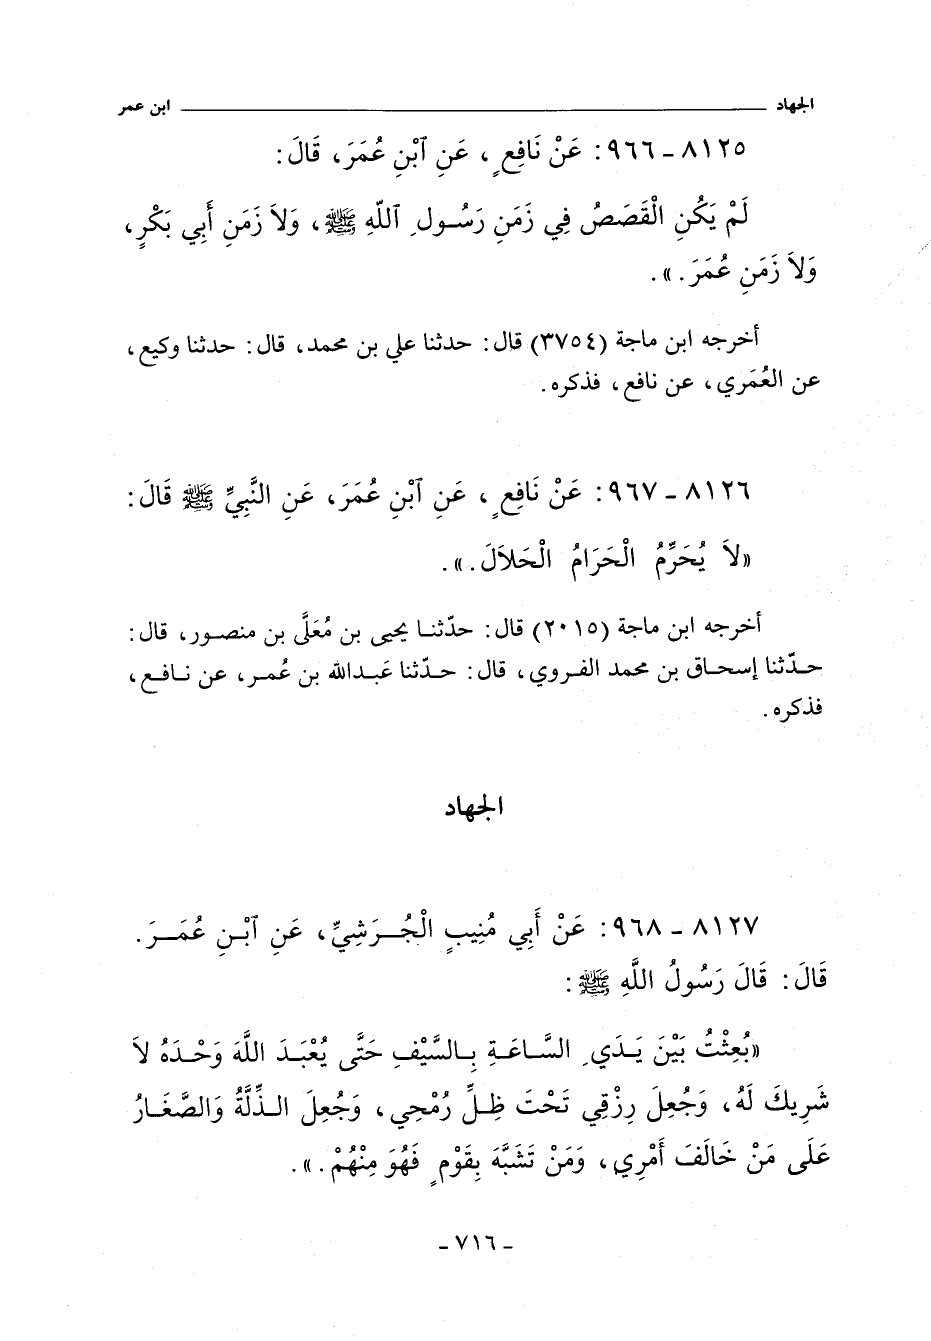 الجهاد ابن عمر
٨١٢٥ - ٩٦٦: عَنْ نَافِعٍ، عَنِ ٱبْنِ عُمَرَ، قَالَ:
لَمْ يَكُنِ الْقَصَصُ فِي زَمَنِ رَسُولِ ٱللّهِ ﷺ، وَلاَ زَمَنِ أَبِي بَكْرٍ،
وَلاَ زَمَنِ عُمَرَ.».
أخرجه ابن ماجة (٣٧٥٤) قال: حدثنا علي بن محمد، قال: حدثنا وكيع،
عن العُمَري، عن نافع، فذكره.
٨١٢٦ - ٩٦٧: عَنْ نَافِعٍ، عَنِ ٱبْنِ عُمَرَ، عَنِ النَّبِيِّ ﷺ قَالَ:
«لاَ يُحَرِّمُ الْحَرَامُ الْحَلاَلَ.».
أخرجه ابن ماجة (٢٠١٥) قال: حدّثنا يحيى بن مُعَلَّى بن منصور، قال:
حدّثنا إسحاق بن محمد الفروي، قال: حدّثنا عَبدالله بن عُمر، عن نافع،
فذكره.
الجهاد
٨١٢٧ - ٩٦٨: عَنْ أَبِي مُنِيبٍ الْجُرَشِيِّ، عَنِ ٱبْنِ عُمَرَ.
قَالَ: قَالَ رَسُولُ اللَّهِ ﷺ:
«بُعِثْتُ بَيْنَ يَدَيِ السَّاعَةِ بِالسَّيْفِ حَتَّى يُعْبَدَ اللَّهَ وَحْدَهُ لاَ
شَرِيكَ لَهُ، وَجُعِلَ رِزْقِي تَحْتَ ظِلِّ رُمْحِي، وَجُعِلَ الذِّلَّةُ وَالصَّغَارُ
عَلَى مَنْ خَالَفَ أَمْرِي، وَمَنْ تَشَبَّهَ بِقَوْمٍ فَهُوَ مِنْهُمْ.».
- ٧١٦ -